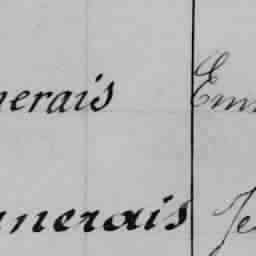 nerais Em
nnerais Je